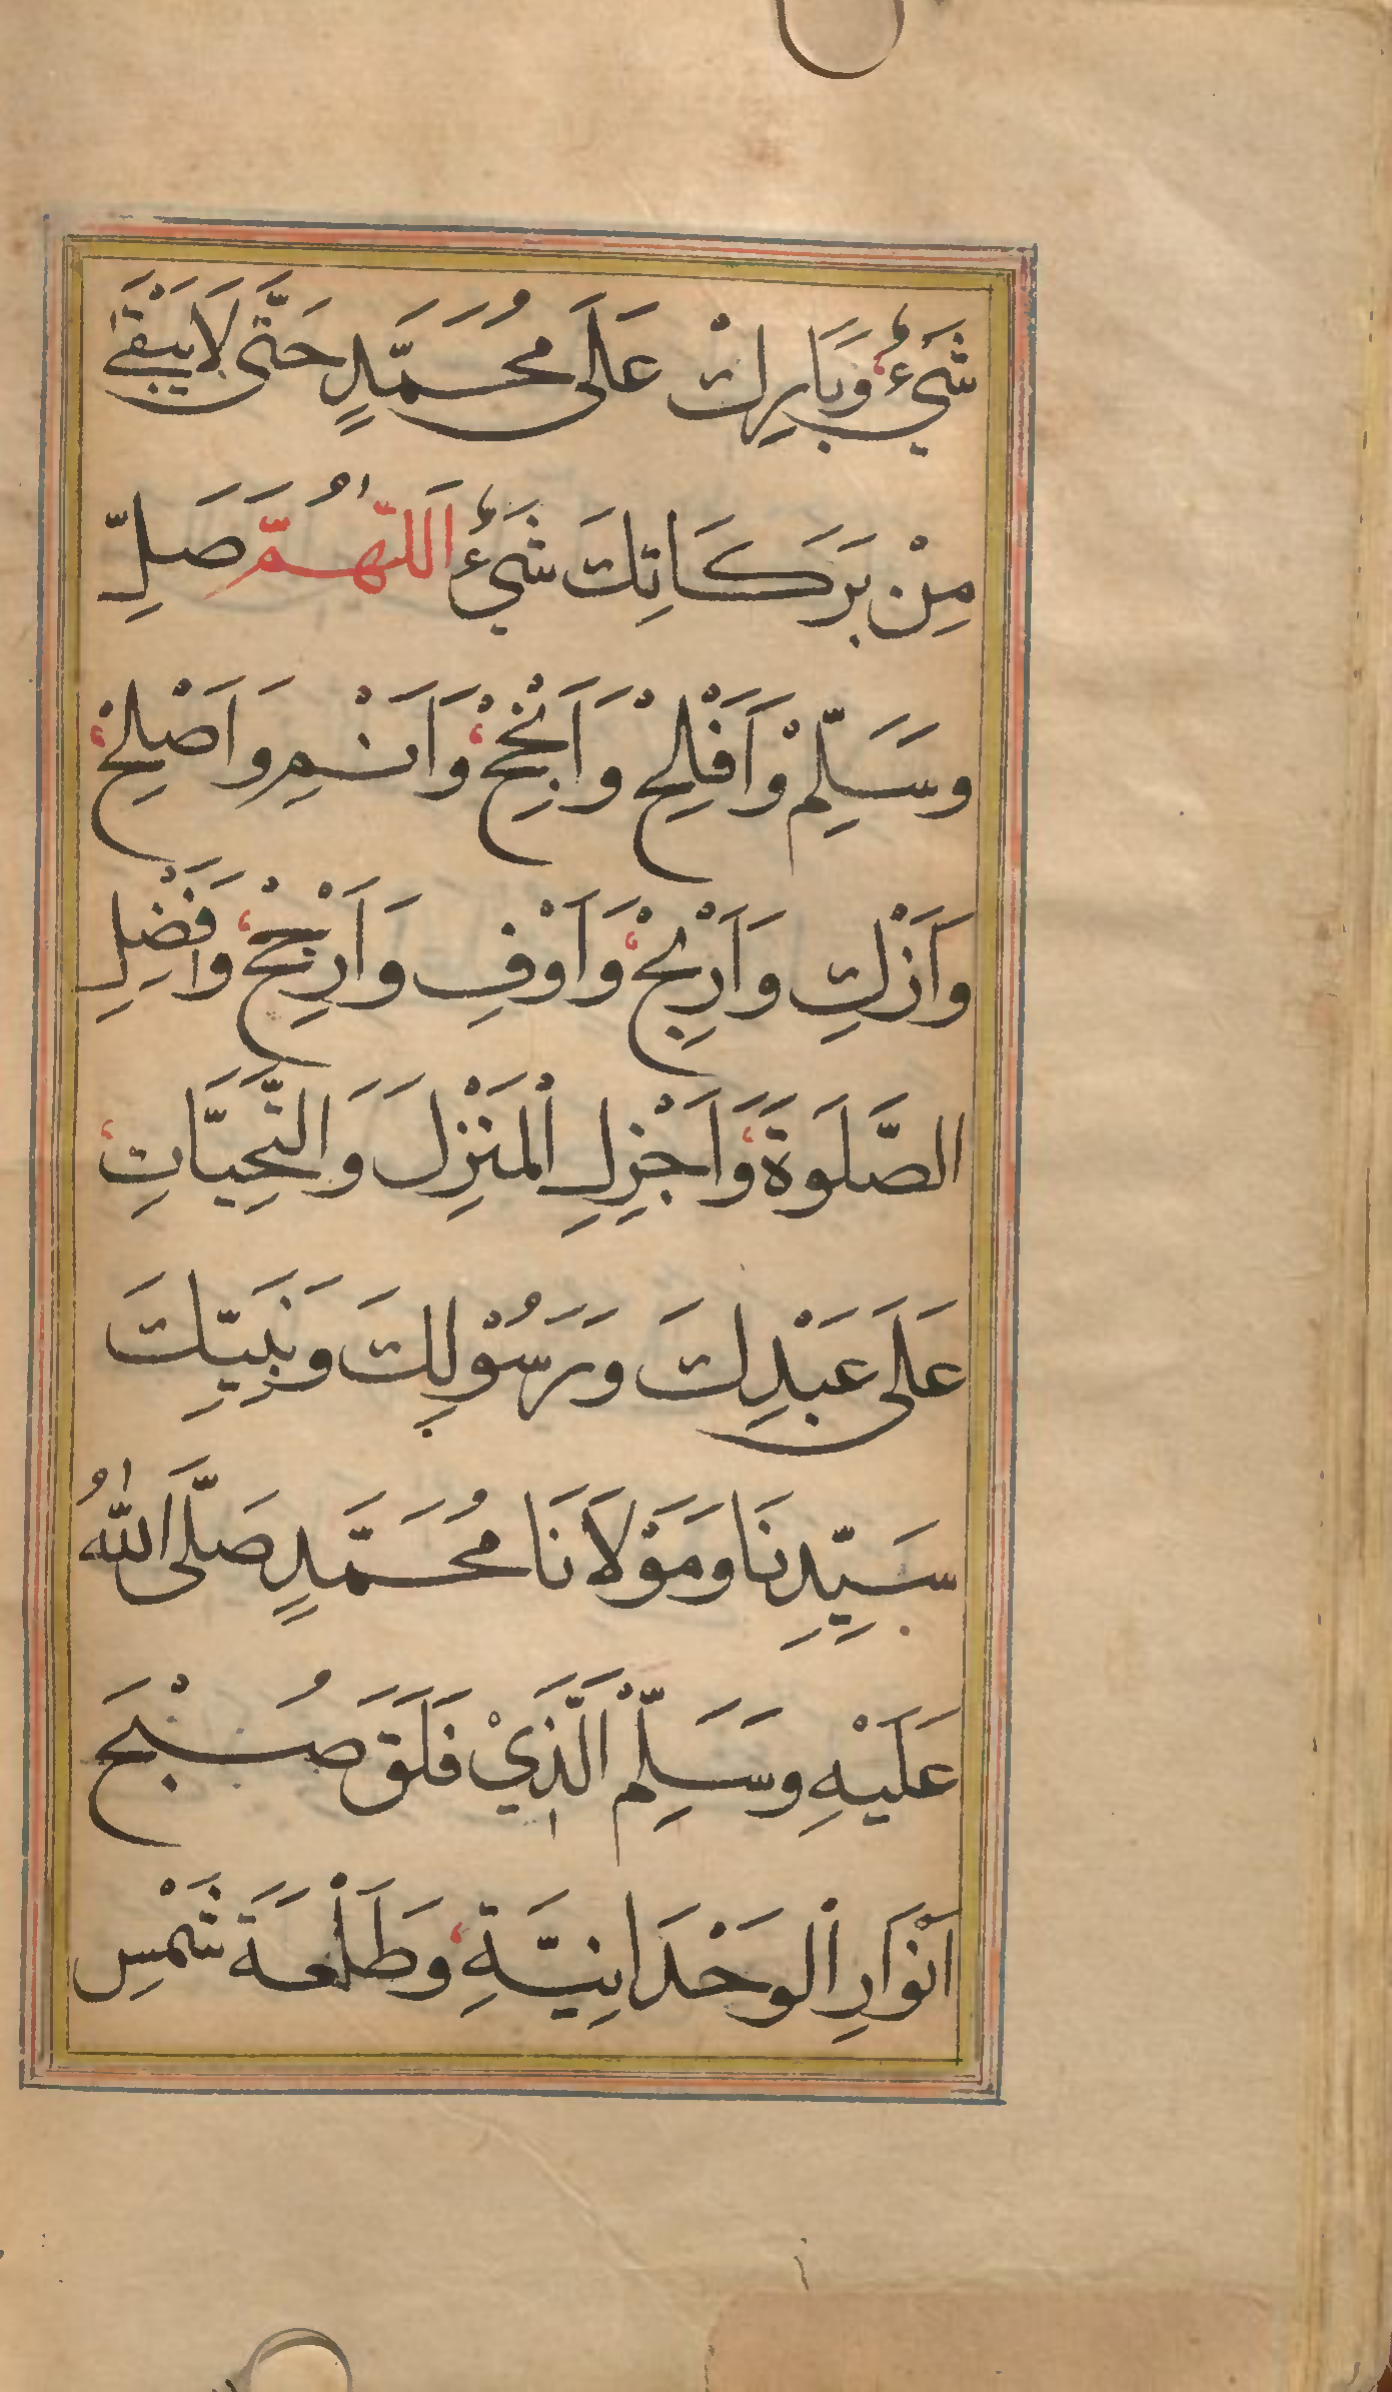 شَيْءٌ وَبَارِكْ عَلَى مُحَمَّدٍ حَتَّى لَا يَبْقَى
مِنْ بَرَكَاتِكَ شَيْءٌ اَللّٰهُمَّ صَلِّ
وَسَلِّمْ وَاَفْلِحْ وَاَنْجِحْ وَاَتْمِمْ وَاَصْلِحْ
وَاَزْكِ وَاَرْبِحْ وَاَوْفِ وَاَرْجِحْ وَاَفْضِلِ
الصَّلٰوةَ وَاَجْزِلِ الْمَنْزِلَ وَالتَّحِيَّاتِ
عَلَى عَبْدِكَ وَرَسُوْلِكَ وَنَبِيِّكَ
سَيِّدِنَا وَمَوْلَانَا مُحَمَّدٍ صَلَّى اللّٰهُ
عَلَيْهِ وَسَلِّمْ الَّذِيْ فَلَقَ صُبْحَ
اَنْوَارِ الْوَحْدَانِيَّةِ وَطَلْعَةَ شَمْسِ